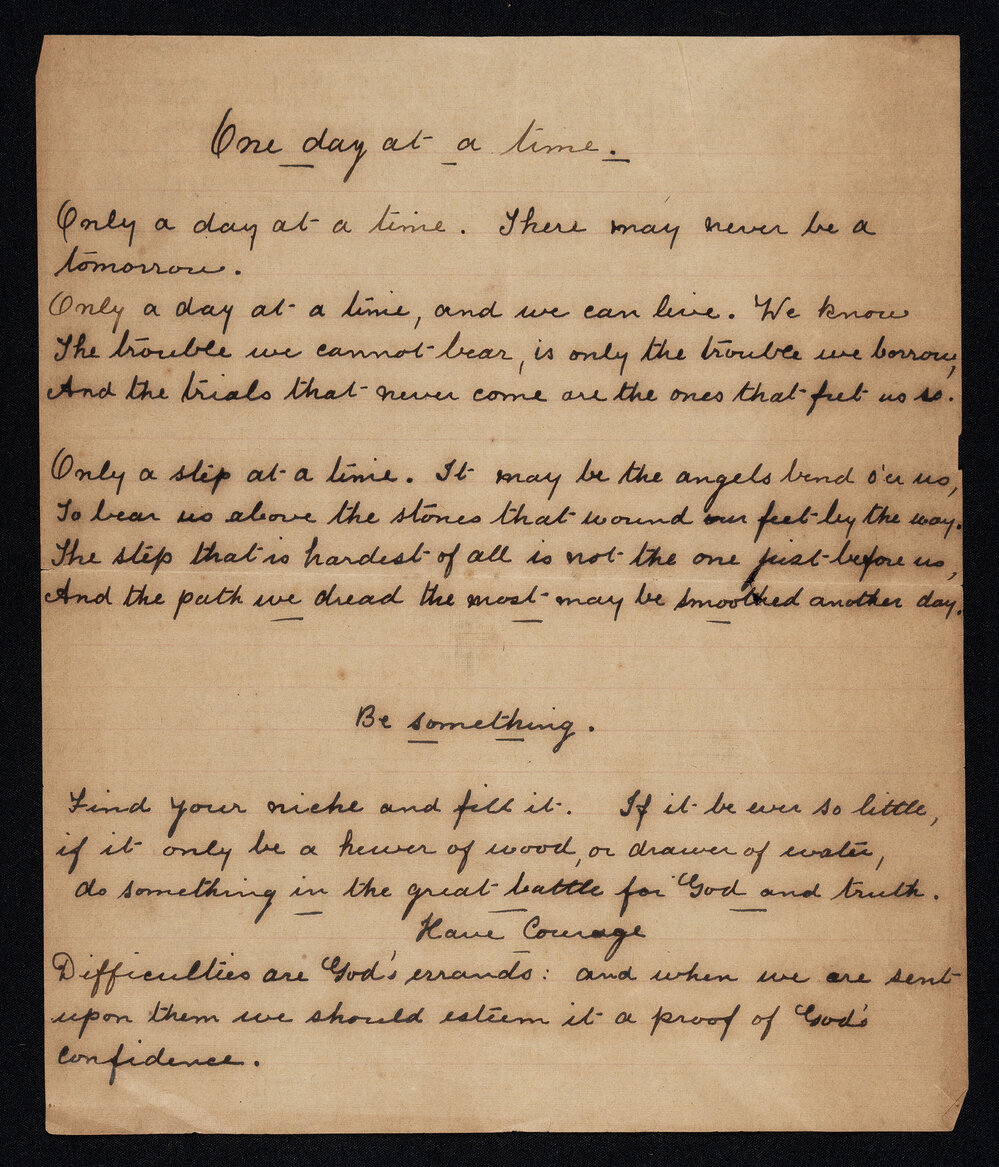 One day at a time.
Only a day at a time. There may never be a
tomorrow.
Only a day at a time, and we can live. We know
The trouble we cannot bear, is only the trouble we borrow,
And the trials that never come are the ones that fret us so.
Only a step at a time. It may be the angels bend o'er us,
To bear us above the stones that wound our feet by the way.
The step that is hardest of all is not the one just before us,
And the path we dread the most may be smoothed another day.
Be something.
Find your niche and fill it. If it be ever so little,
if it only be a hewer of wood, or drawer of water,
do something in the great battle for God and truth.
Have Courage
Difficulties are God's errands: and when we are sent
upon them we should esteem it a proof of God's
confidence.